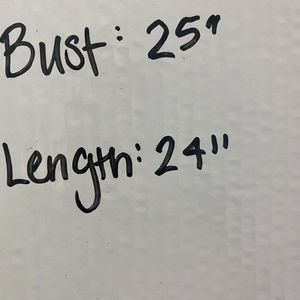 Bust: 25"
Length: 24"